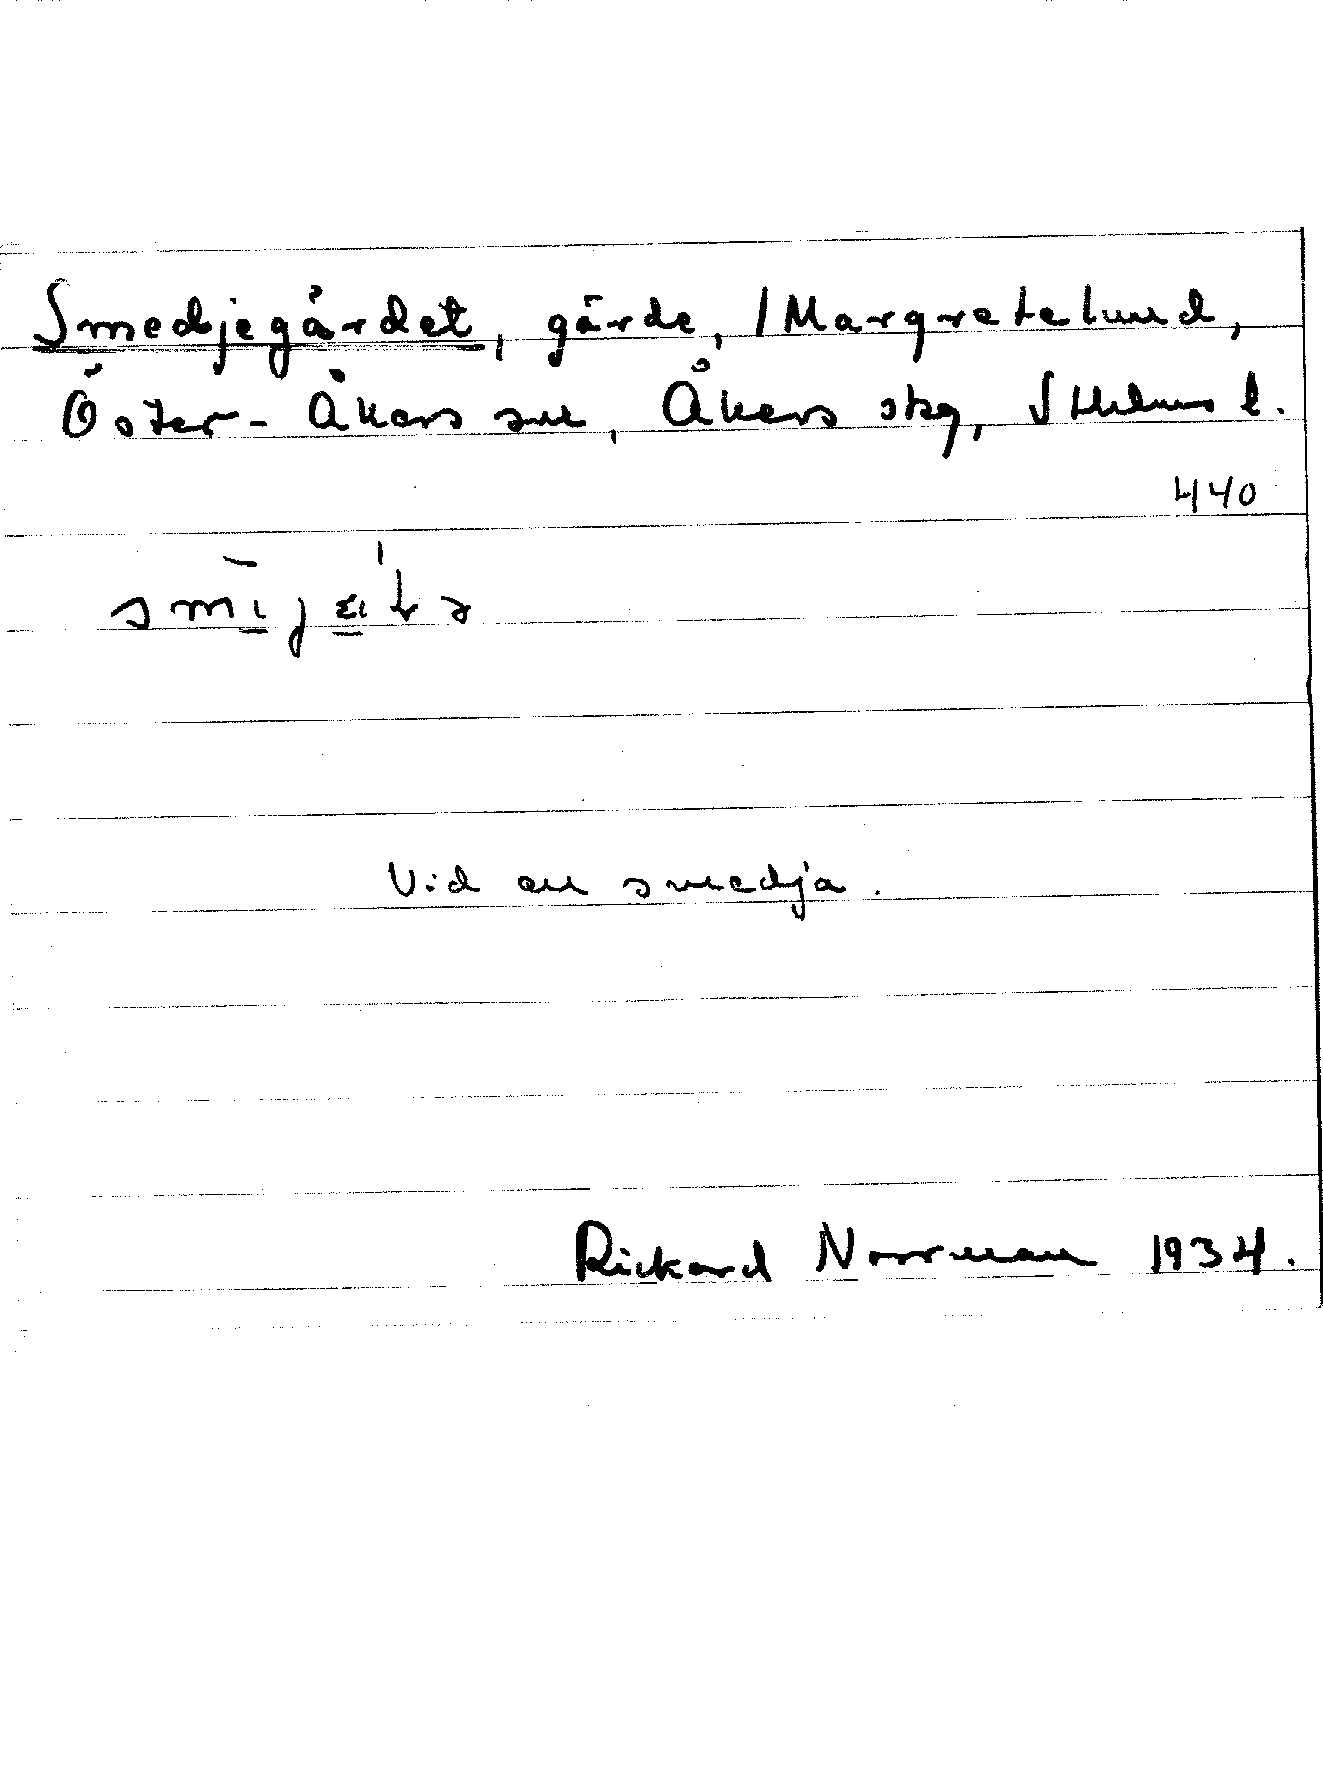 Smedjegärdet, gärde, / Margretelund,
Öster-Åkers sn, Åkers skg, Sthlms l.
440
Vid en smedja.
Rickard Norrman 1934.